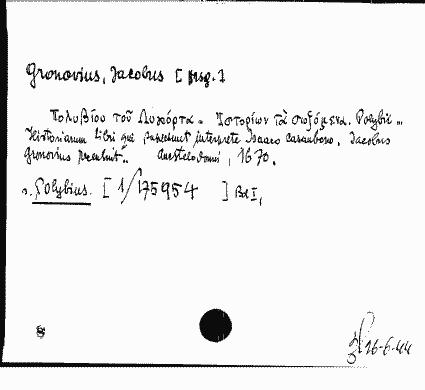 Gronovius, Jacobus [Hrsg.]
Πολυβίου τοῦ Λυκόρτα .. Ἱστορίων τὰ σωζόμενα. Polybii ..
Historiarum libri qui supersunt interprete Isaaco Casaubono. Jacobus
Gronovius recensuit .. Amstelodami, 1670.
s. Polybius. [1/175954 ] Bd I,
16-6-44